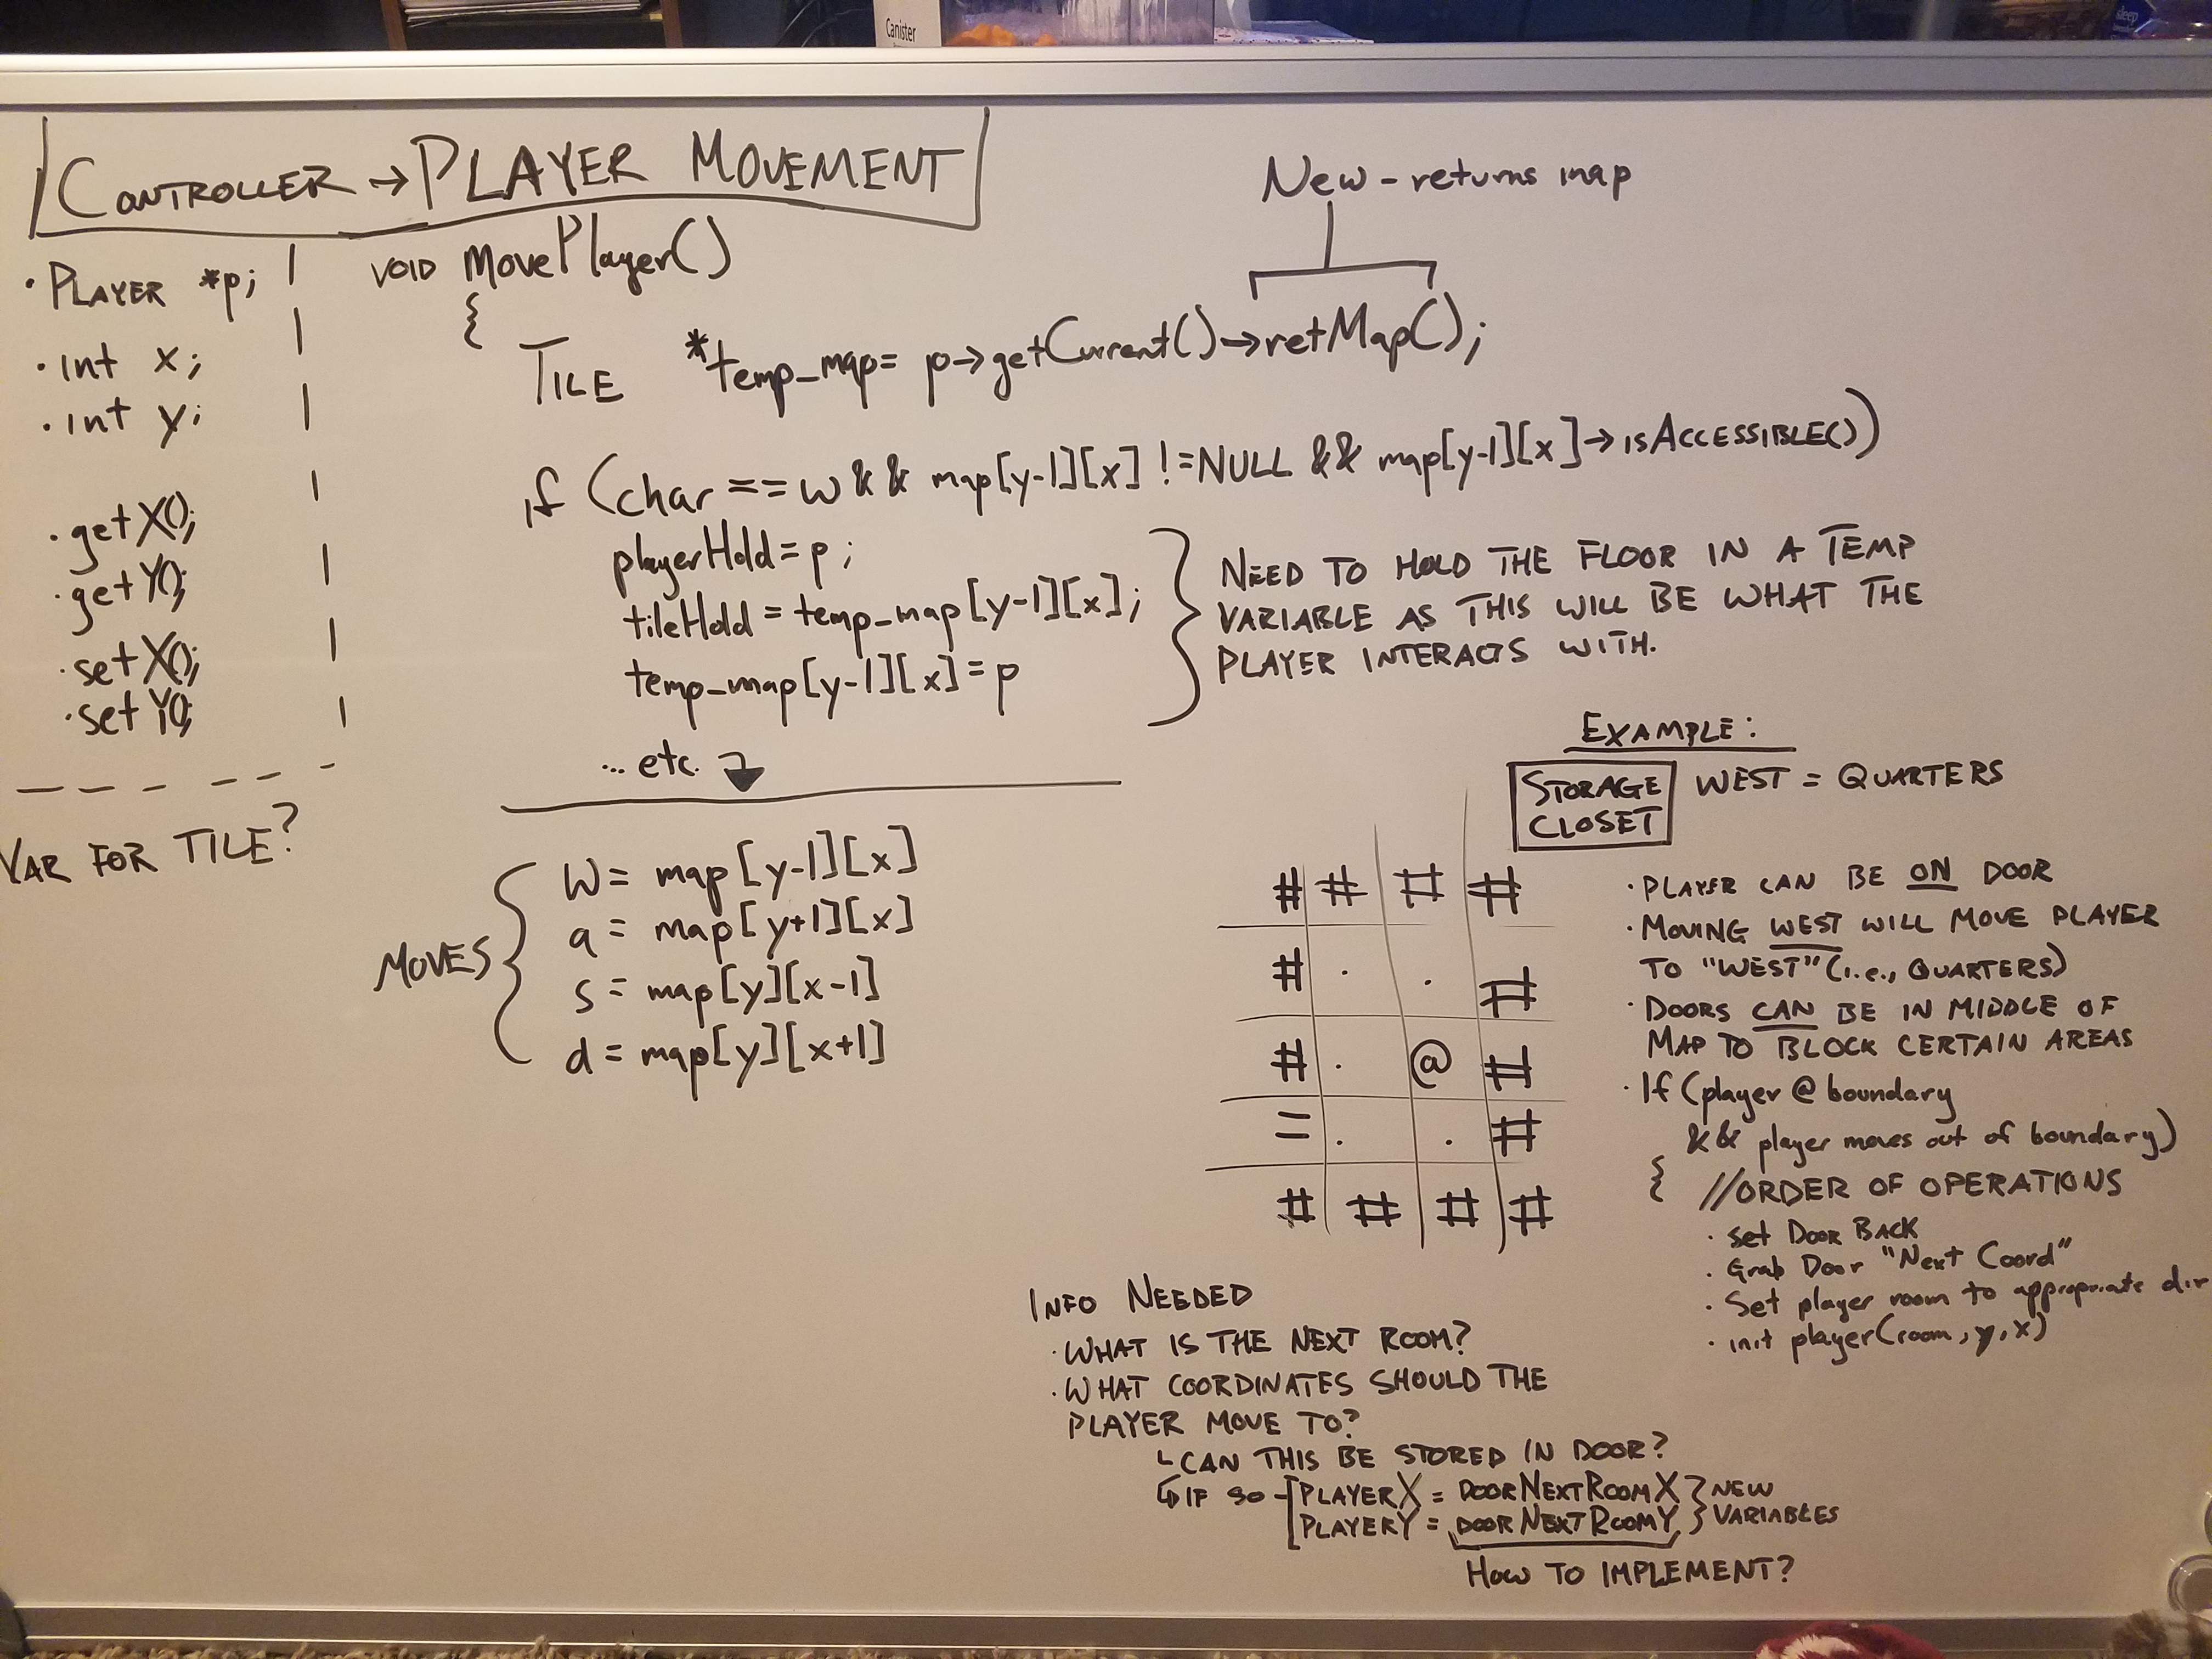 Canister
sleep
CONTROLLER → PLAYER MOVEMENT
· PLAYER *p;
· int x;
· int y;
· getX();
· getY();
· setX();
· setY();
VAR FOR TILE?
VOID MovePlayer()
{
New - returns map
TILE *temp_map= p→getCurrent()→retMap();
if (char == w && map[y-1][x] != NULL && map[y-1][x]→isACCESSIBLE())
playerHold = p;
tileHold = temp_map[y-1][x];
temp_map[y-1][x] = p
... etc.
NEED TO HOLD THE FLOOR IN A TEMP
VARIABLE AS THIS WILL BE WHAT THE
PLAYER INTERACTS WITH.
MOVES
W = map[y-1][x]
a = map[y+1][x]
s = map[y][x-1]
d = map[y][x+1]
EXAMPLE:
STORAGE
CLOSET
WEST = QUARTERS
# # # #
# . . #
# . @ #
= . . #
# # # #
· PLAYER CAN BE ON DOOR
· MOVING WEST WILL MOVE PLAYER
TO "WEST" (i.e., QUARTERS)
· DOORS CAN BE IN MIDDLE OF
MAP TO BLOCK CERTAIN AREAS
· If (player @ boundary
&& player moves out of boundary)
{ //ORDER OF OPERATIONS
· set DOOR BACK
· Grab Door "Next Coord"
· Set player room to appropriate dir
· init player(room, y, x)
INFO NEEDED
· WHAT IS THE NEXT ROOM?
· WHAT COORDINATES SHOULD THE
PLAYER MOVE TO?
CAN THIS BE STORED IN DOOR?
IF SO - [PLAYERX = DOORNEXTROOMX } NEW
PLAYERY = DOORNEXTROOMY } VARIABLES
HOW TO IMPLEMENT?